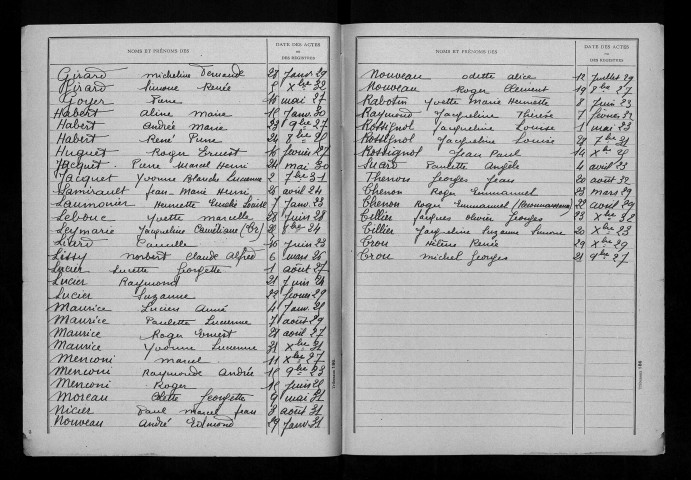 NOMS ET PRÉNOMS DES
DATE DES ACTES
OU
DES REGISTRES
Girard micheline 28 Janv 29
Girard Simone Renée 5 Xbre 32
Goyer 16 mai 27
Habert Aline Marie 15 Janv 30
Habert Andrée Marie 23 9bre 27
Habert René 24 8bre
Huguet Roger Ernest 16 février 27
Jacquet Marcel Henri 24 mai 30
Jacquet Yvonne Blanche Lucienne 2 7bre 31
Lamirault Jean Marie Henri 26 avril 24
Laumonier Henriette Louise 7 Janv 23
Lebouc Yvette marcelle 28 Juin 28
Leymarie Jacqueline 8bre 24
Camille 16 Juin 23
Lissy Norbert Claude Alfred 6 mars 26
Lucier Lucette Georgette 1 aout 27
Lucier Raymond 21 Juin
Lucier Suzanne 22 février 22
Maurice Lucien Aimé 4 Janv
Maurice Paulette Lucienne 7 août 29
Maurice Roger Ernest avril 27
Maurice Yvonne Lucienne 21 Xbre 21
Menconi Marcel 11 Xbre 27
Menconi Raymonde Andrée 15 9bre 23
Menconi Roger 15 Juin
Moreau Odette Georgette 9 mai 31
Nicier Paul marcel Jean 3 août 31
Nouveau André Edmond 29 Janv 31
NOMS ET PRÉNOMS DES
DATE DES ACTES
OU
DES REGISTRES
Nouveau odette alice 12 Juillet 29
Nouveau Roger Clement 19 8bre 27
Rabotin Yvette Marie Henriette 8 Juin 23
Raymond Jacqueline Thérèse 7 février
Rossignol Jacqueline Louise 1 mai 23
Rossignol Jacqueline Louise 7bre 31
Rossignol Jean Paul 14 Xbre
Sicard Paulette Angèle 4 avril 23
Thenon Georges Jean 20 aout 32
Thenon Roger Emmanuel 23 mars 29
Thenon Roger Emmanuel (Reconnaissance) 22 avril 29
Tillier Jacques Olivier Georges 23 Xbre 32
Tillier Jacqueline Suzanne Simone 20 Xbre 23
Crou Hélène Renée 29 Xbre 29
Crou michel Georges 21 9bre 27